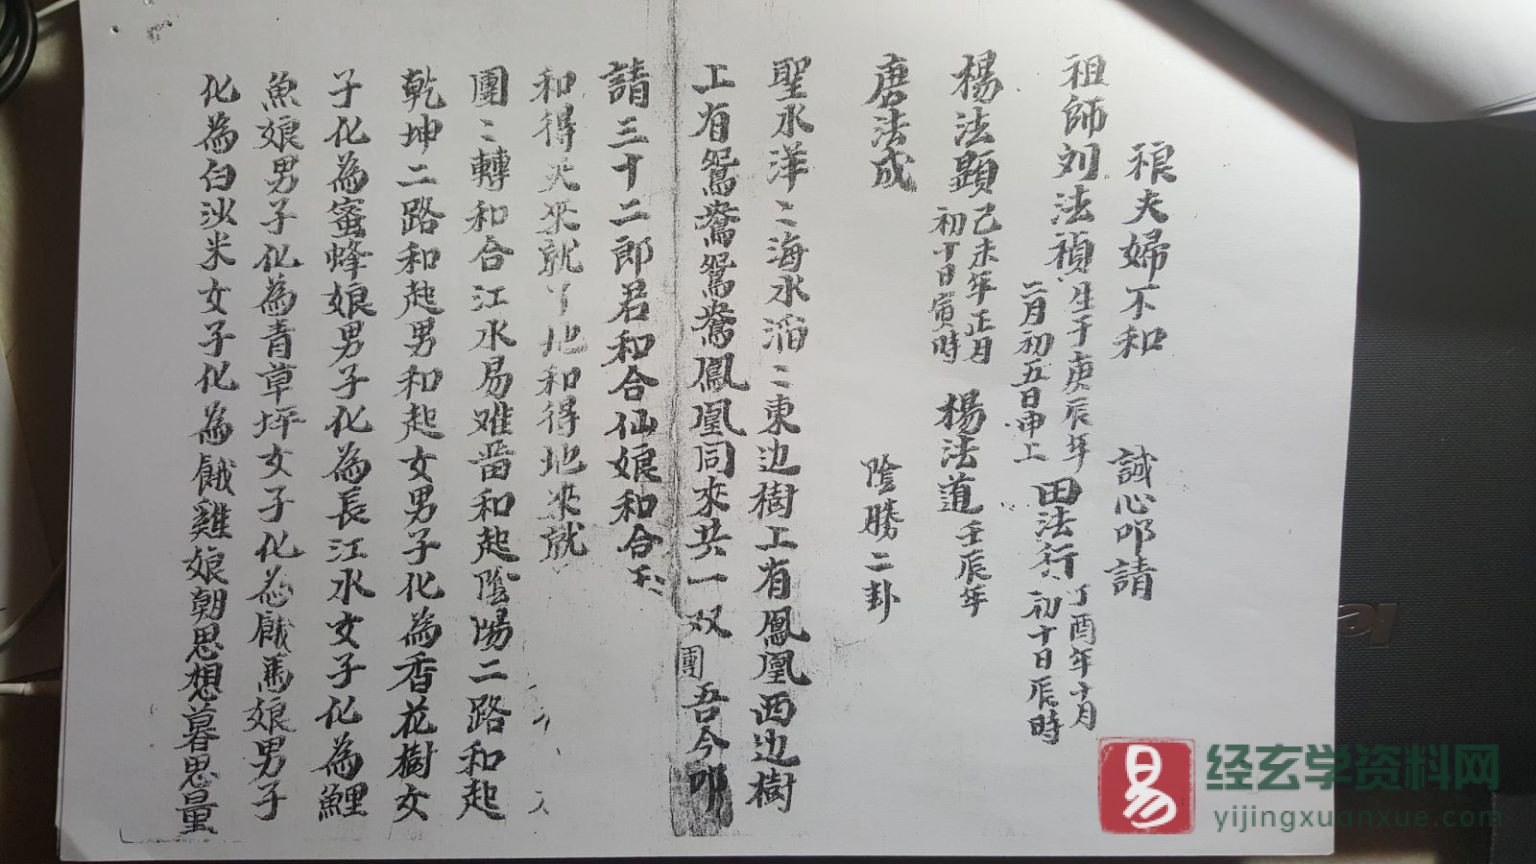 祖師刘法禎生于庚辰年二月初五日申上 田法行丁酉年十月初十日辰時
夫婦不和 誠心叩請
楊法顕己未年正月初丁日寅時 楊法道壬辰年
唐法成 陰勝二卦
聖水洋〻海水滔〻東边樹工有鳳凰西边樹
工有鴛鴦鴛鴦鳳凰同來共一双團吾今叩
請三十二郎君和合仙娘和合
和得天來就丫地和得地來就
團〻轉和合江水易难畨和起陰陽二路和起
乾坤二路和起男和起女男子化為香花樹女
子化為蜜蜂娘男子化為長江水女子化為鯉
魚娘男子化為青草坪女子化為餓馬娘男子
化為白沙米女子化為餓雞娘朝思想暮思量
易
经玄学资料网
yijingxuanxue.com